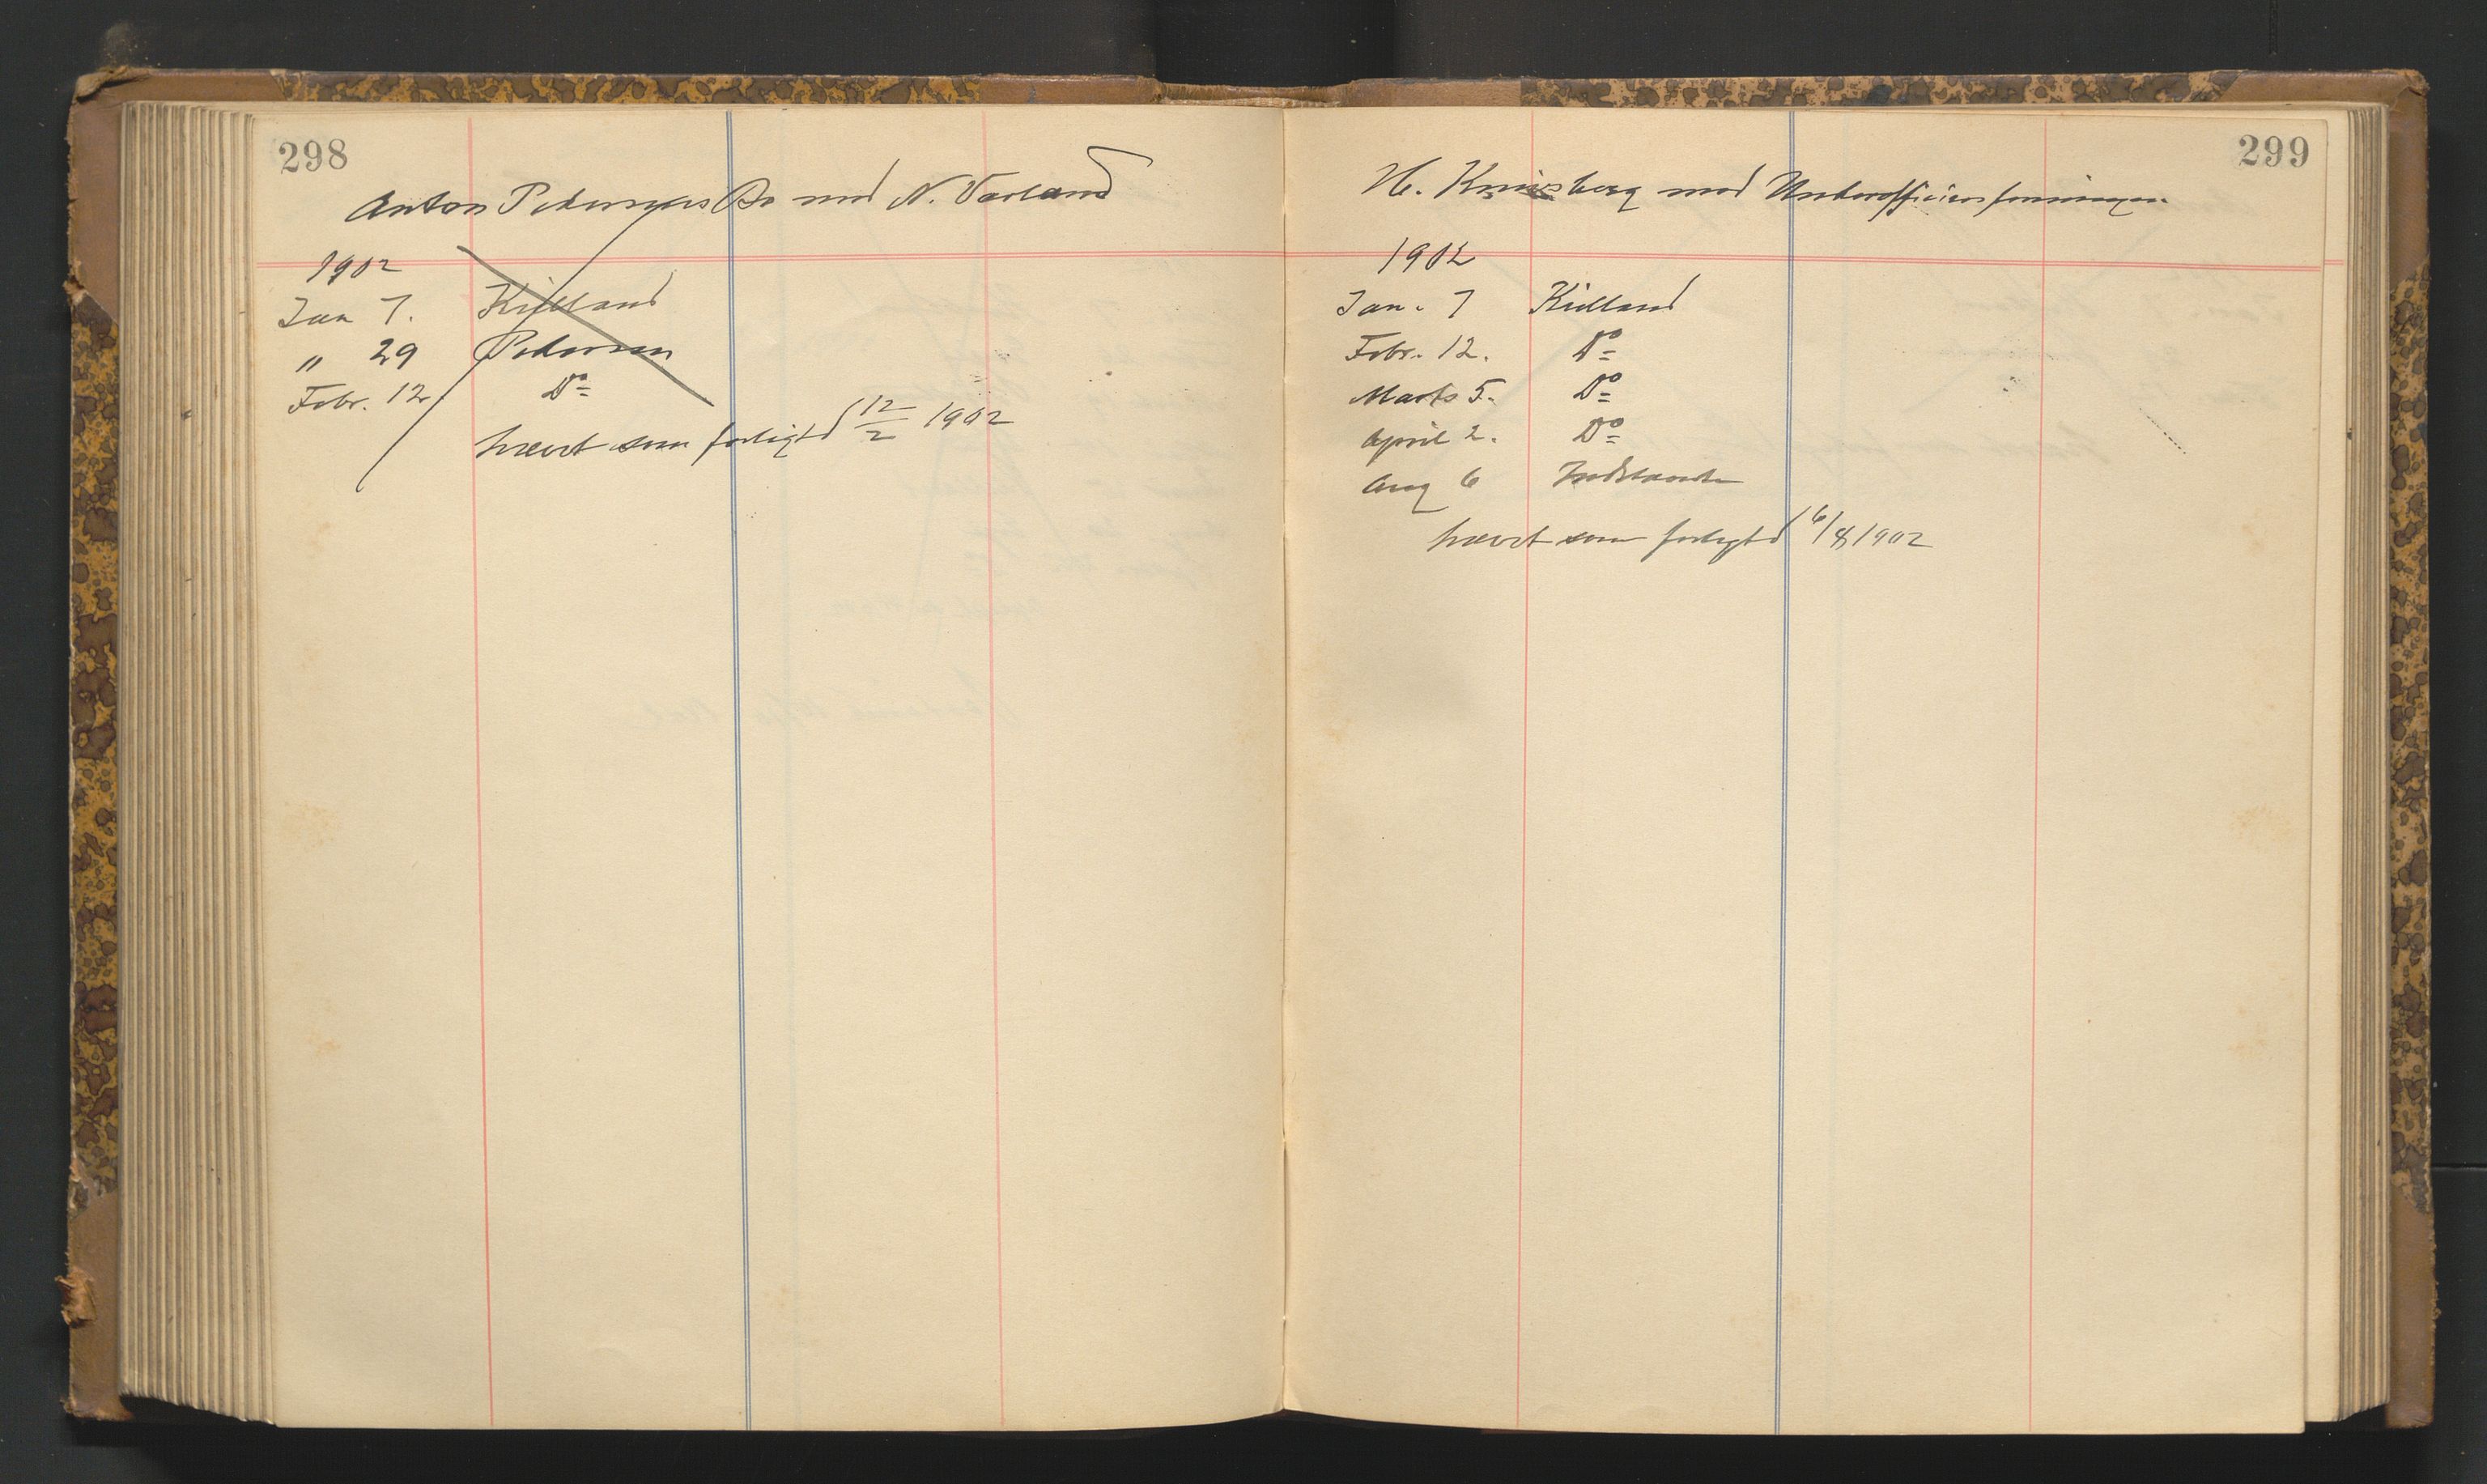 298
Anton Pedersens Bo mod N. Varland
1902
Jan 7. Kielland
" 29 Pedersen
Febr. 12. Do
hævet som forligt d 12/2 1902
299
H. mod Underofficersforeningen
1902
Jan. 7 Kielland
Febr. 12. Do
Marts 5. Do
April 2. Do
Aug 6 Indstevnte
hævet som forligt d 6/8 1902